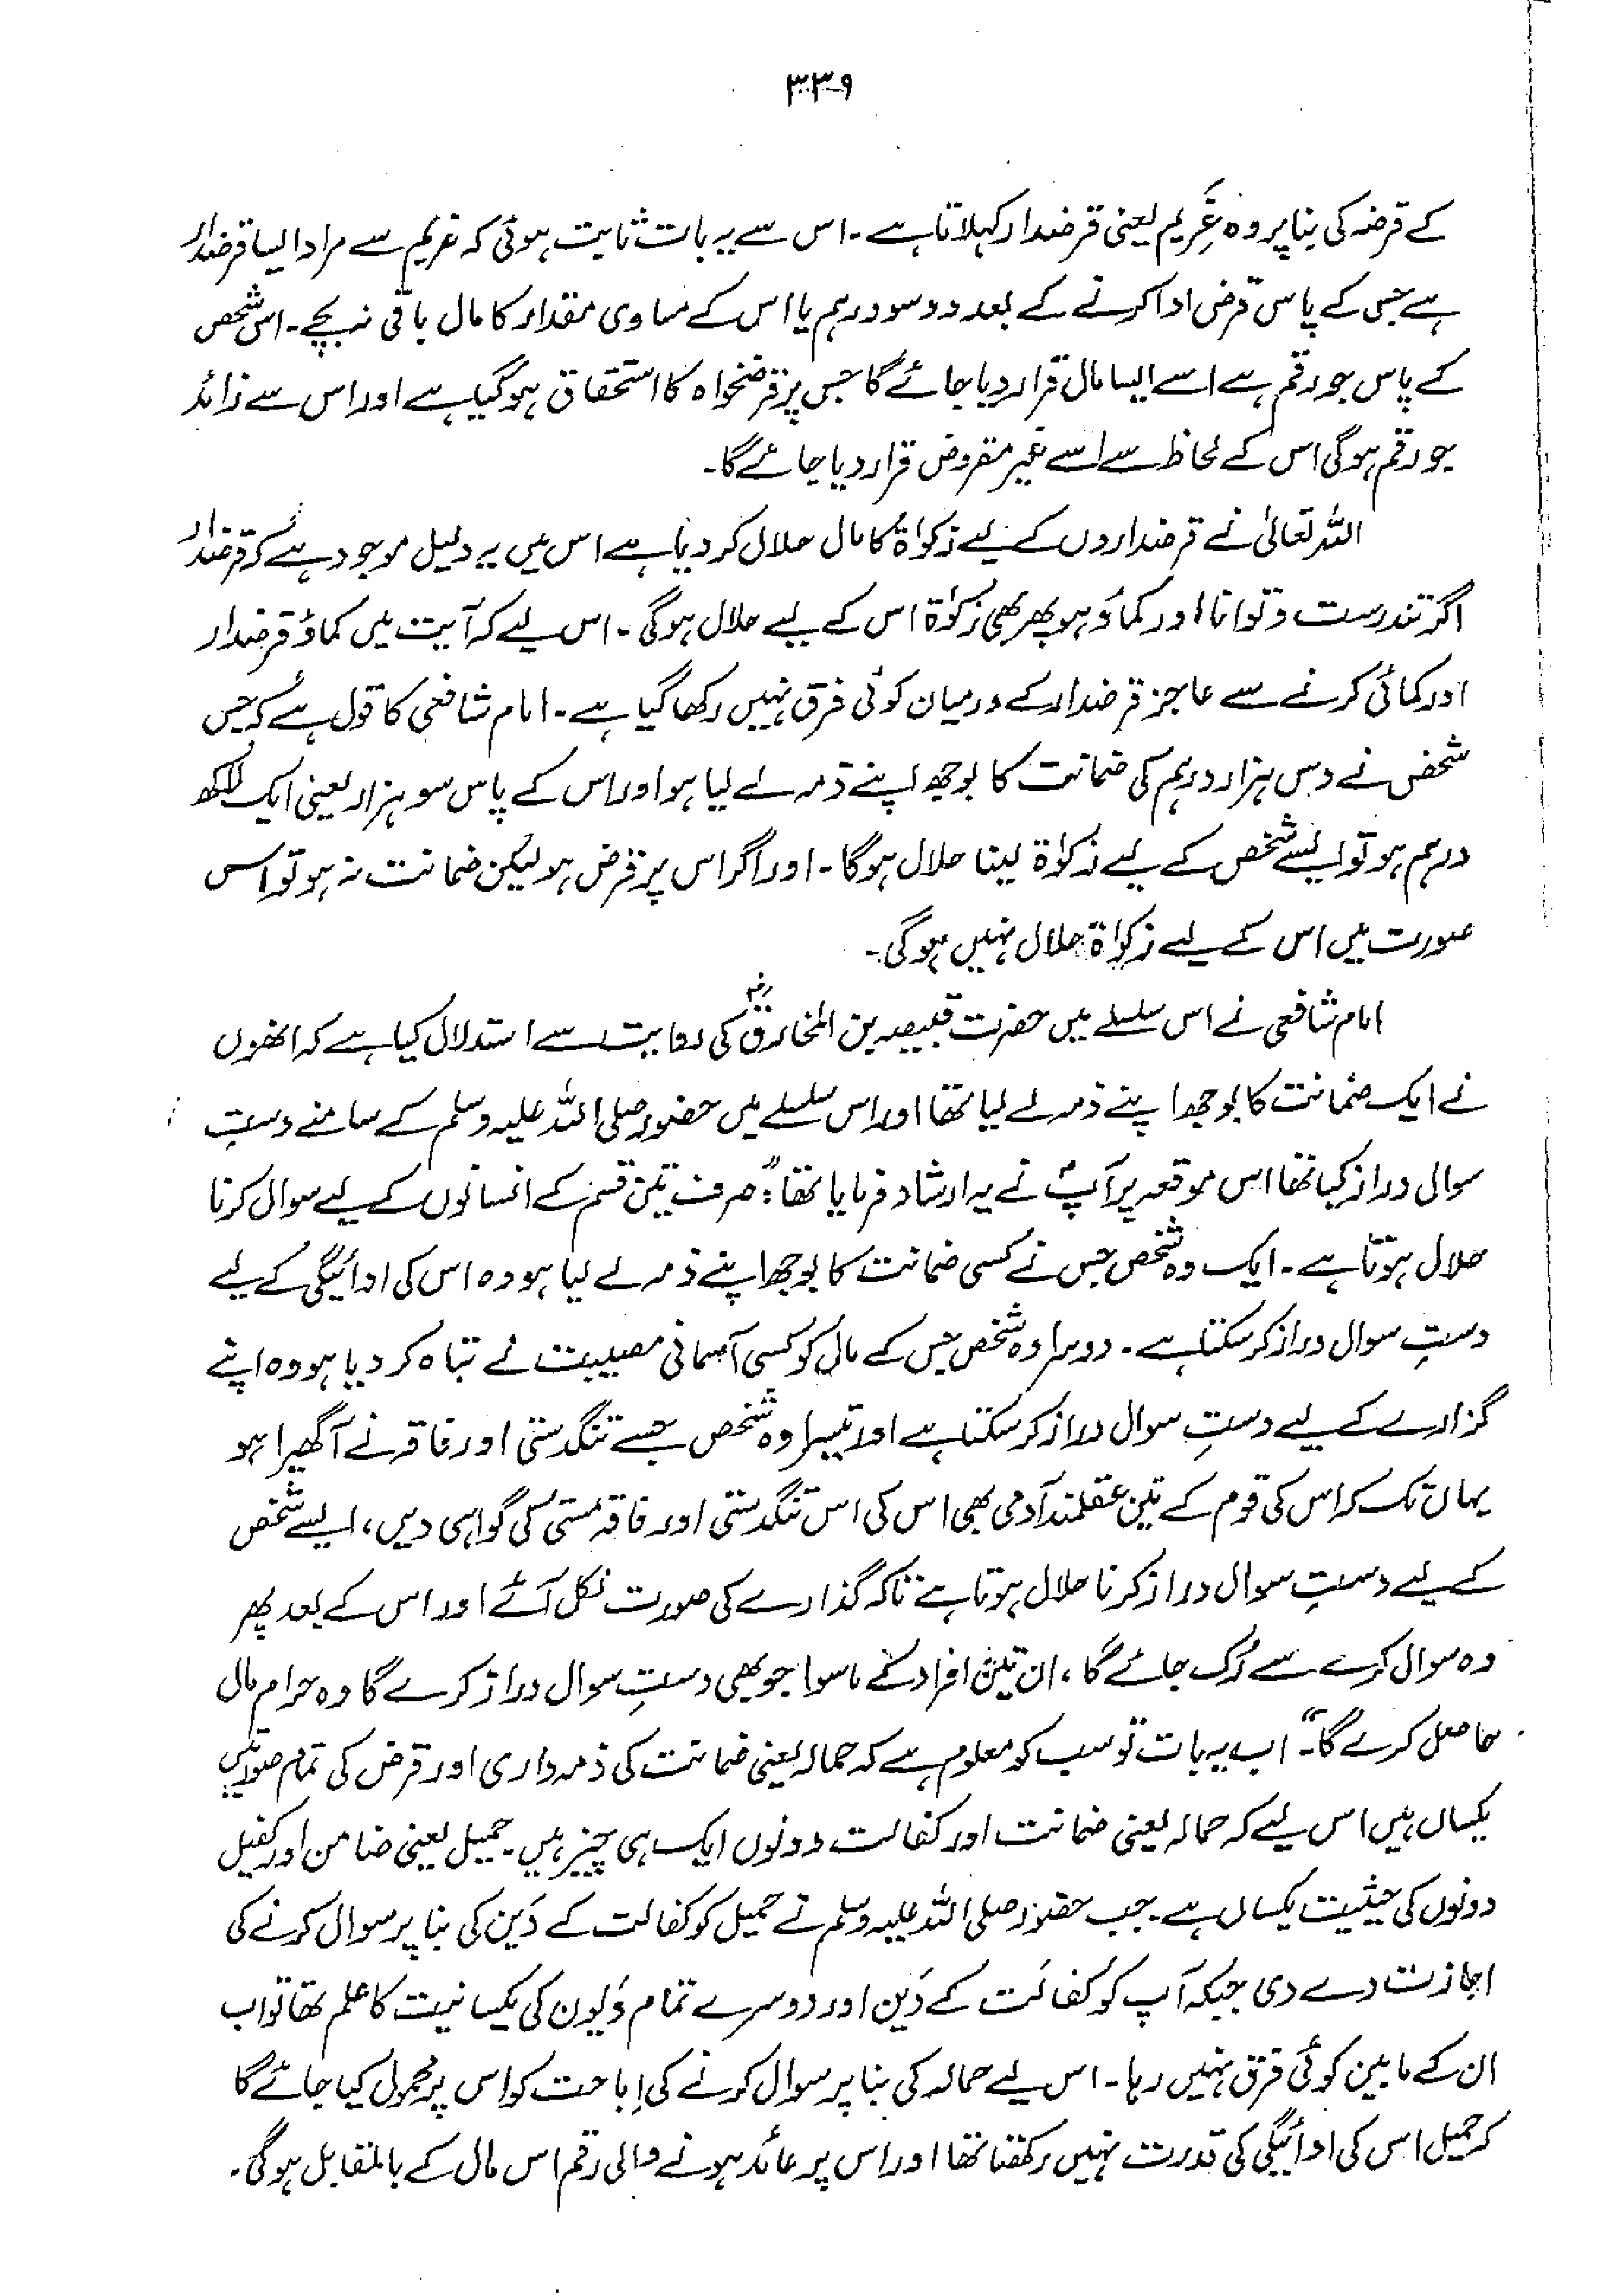 ۳۳۹
کے قرضہ کی بنا پر وہ غَرِیم یعنی قرضدار کہلاتا ہے۔ اس سے یہ بات ثابت ہوئی کہ غریم سے مراد ایسا قرضدار
ہے جس کے پاس قرض ادا کرنے کے بعد دو سو درہم یا اس کے مساوی مقدار کا مال باقی نہ بچے۔ اس شخص
کے پاس جو رقم ہے اسے ایسا مال قرار دیا جائے گا جس پر قرضخواہ کا استحقاق ہو گیا ہے اور اس سے زائد
جو رقم ہو گی اس کے لحاظ سے اسے غیر مقروض قرار دیا جائے گا۔
اللہ تعالیٰ نے قرضداروں کے لیے زکوٰۃ کا مال حلال کر دیا ہے اس میں یہ دلیل موجود ہے کہ قرضدار
اگر تندرست و توانا اور کماؤ ہو پھر بھی زکوٰۃ اس کے لیے حلال ہوگی۔ اس لیے کہ آیت میں کماؤ قرضدار
اور کمائی کرنے سے عاجز قرضدار کے درمیان کوئی فرق نہیں رکھا گیا ہے۔ امام شافعی کا قول ہے کہ جس
شخص نے دس ہزار درہم کی ضمانت کا بوجھ اپنے ذمہ لے لیا ہو اور اس کے پاس سو ہزار یعنی ایک لاکھ
درہم ہو تو ایسے شخص کے لیے زکوٰۃ لینا حلال ہوگا۔ اور اگر اس پر قرض ہو لیکن ضمانت نہ ہو تو اس
صورت میں اس کے لیے زکوٰۃ حلال نہیں ہوگی۔
امام شافعی نے اس سلسلے میں حضرت قبیصہ بن المخارقؓ کی روایت سے استدلال کیا ہے کہ انھوں
نے ایک ضمانت کا بوجھ اپنے ذمہ لے لیا تھا اور اس سلسلے میں حضور صلی اللہ علیہ وسلم کے سامنے دستِ
سوال دراز کیا تھا اس موقعہ پر آپؐ نے یہ ارشاد فرمایا تھا: "صرف تین قسم کے انسانوں کے لیے سوال کرنا
حلال ہوتا ہے۔ ایک وہ شخص جس نے کسی ضمانت کا بوجھ اپنے ذمہ لے لیا ہو وہ اس کی ادائیگی کے لیے
دستِ سوال دراز کر سکتا ہے۔ دوسرا وہ شخص جس کے مال کو کسی آسمانی مصیبت نے تباہ کر دیا ہو وہ اپنے
گزارے کے لیے دستِ سوال دراز کر سکتا ہے اور تیسرا وہ شخص جسے تنگدستی اور فاقہ نے آ گھیرا ہو
یہاں تک کہ اس کی قوم کے تین عقلمند آدمی بھی اس کی اس تنگدستی اور فاقہ مستی کی گواہی دیں، ایسے شخص
کے لیے دستِ سوال دراز کرنا حلال ہوتا ہے تاکہ گذارے کی صورت نکل آئے اور اس کے بعد پھر
وہ سوال کرے سے رُک جائے گا، ان تین افراد کے ماسوا جو بھی دستِ سوال دراز کرے گا وہ حرام مال
حاصل کرے گا۔" اب یہ بات تو سب کو معلوم ہے کہ حمالہ یعنی ضمانت کی ذمہ داری اور قرض کی تمام صورتیں
یکساں ہیں اس لیے کہ حمالہ یعنی ضمانت اور کفالت دونوں ایک ہی چیز ہیں۔ حمیل یعنی ضامن اور کفیل
دونوں کی حیثیت یکساں ہے۔ جب حضور صلی اللہ علیہ وسلم نے حمیل کو کفالت کے دَین کی بنا پر سوال کرنے کی
اجازت دے دی جبکہ آپ کو کفالت کے دَین اور دوسرے تمام دُیون کی یکسانیت کا علم تھا تو اب
ان کے مابین کوئی فرق نہیں رہا۔ اس لیے حمالہ کی بنا پر سوال کرنے کی اِباحت کو اس پر محمول کیا جائے گا
کہ حمیل اس کی ادائیگی کی قدرت نہیں رکھتا تھا اور اس پر عائد ہونے والی رقم اس مال کے بالمقابل ہوگی۔